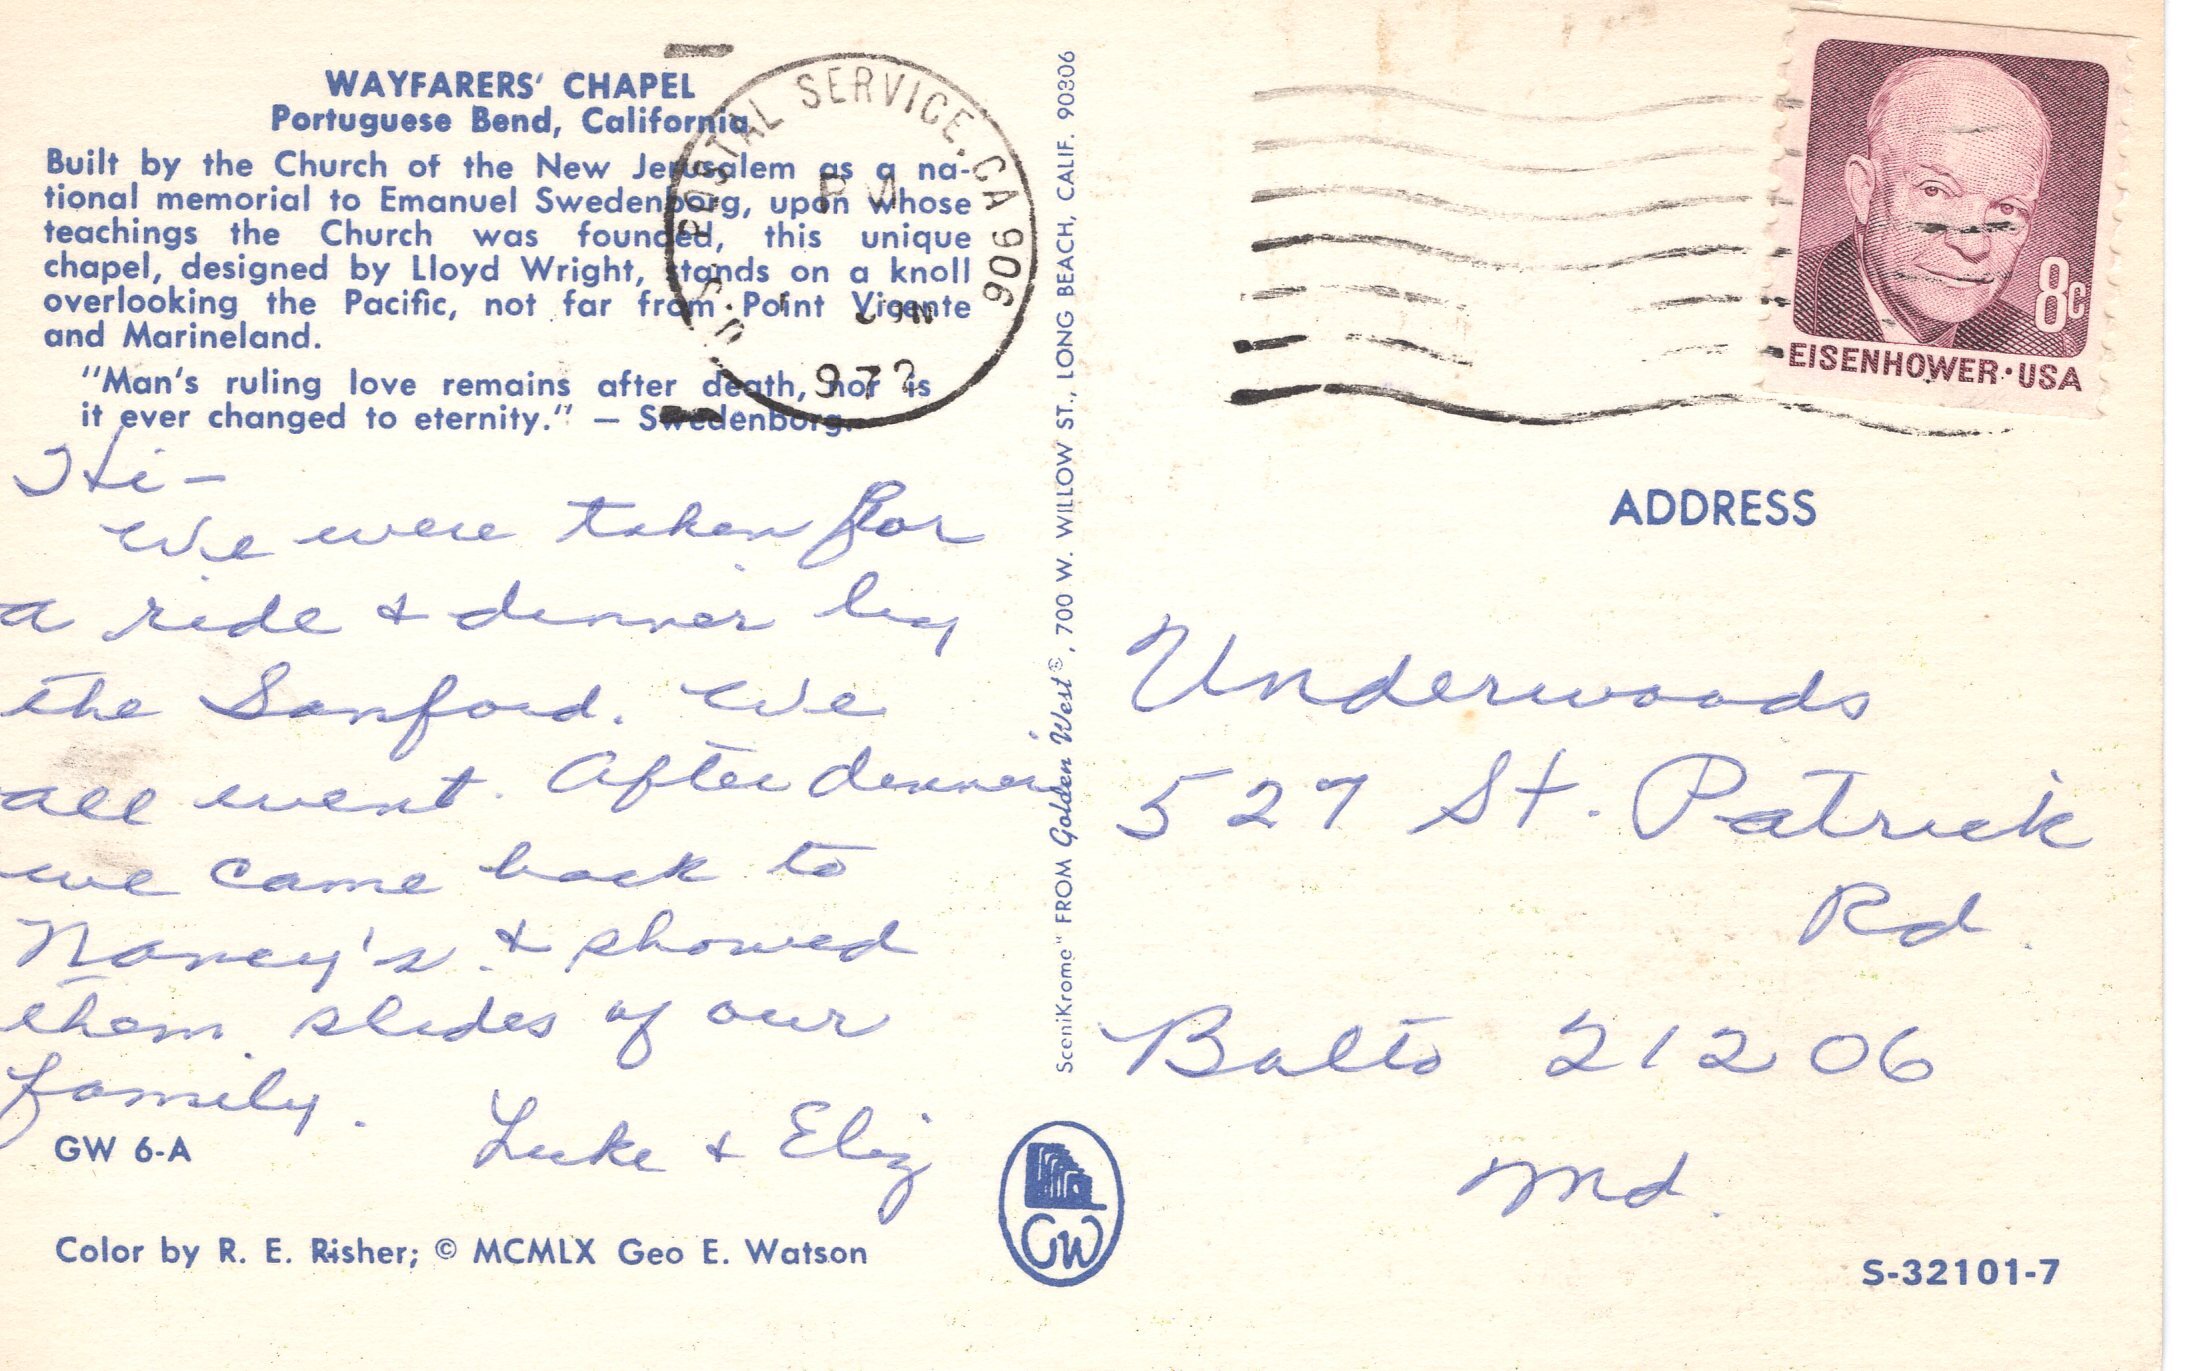 WAYFARERS' CHAPEL
Portuguese Bend, California
Built by the Church of the New Jerusalem as a na-
tional memorial to Emanuel Swedenborg, upon whose
teachings the Church was founded, this unique
chapel, designed by Lloyd Wright, stands on a knoll
overlooking the Pacific, not far from Point Vicente
and Marineland.
"Man's ruling love remains after death, nor is
it ever changed to eternity." — Swedenborg.
Hi-
We were taken for
a ride & dinner by
the Sanford. We
all went. After dinner
we came back to
Nancy's & showed
them slides of our
family.
Luke & Eliz
GW 6-A
Color by R. E. Risher; © MCMLX Geo E. Watson
U.S. POSTAL SERVICE, CA 906
PM
197
SceniKrome" FROM Golden West®, 700 W. WILLOW ST., LONG BEACH, CALIF. 90806
GW
EISENHOWER·USA
8c
ADDRESS
Underwoods
527 St. Patrick
Rd.
Balto 21206
Md.
S-32101-7